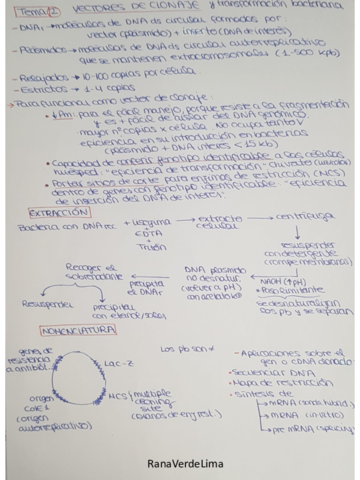 Tema 12 VECTORES DE CLONAJE y transformación bacteriana
- DNAr → moléculas de DNA ds circular formados por:
vector (plásmido) + inserto (DNA de interés)
- Plásmidos → moléculas de DNA ds circular autorreplicativo
que se mantienen extracromosómicas (1-500 kpb)
- Relajados → 10-100 copias por célula
- Estrictos → 1-4 copias
Para funcionar como vector de clonaje:
↓Pm: para el fácil manejo, porque resiste a la fragmentación
y es + fácil de aislar del DNA genómico
mayor nº copias x célula. No ocupa tanto V
eficiencia en su introducción en bacterias
(plásmido + DNA inter < 15 kb)
Capacidad de conferir genotipo identificable a las células
huésped: "eficiencia de transformación"
Portar sitios de corte para enzimas de restricción (MCS)
dentro de genes con genotipo identificable "eficiencia
de inserción del DNA de interés"
EXTRACCIÓN
Bacteria con DNA rec + lisozima → extracto celular → centrifuga
+ EDTA
+ Tritón
resuspender
con detergente
(rompe membranas)
NAOH (↑pH)
+ Rápidamente
se desnaturalizan
las pb y se separan
DNA plásmido
no desnatur.
(volver a pH)
con acetato K
Recoger el
sobrenadante
precipita
el DNAr
Resuspender
precipitar
con etanol
NOMENCLATURA
genes de
resistencia
a antibiót.
Lac-Z
Los pb son
origen
ColE1
(origen
autorreplicativo)
MCS (multiple
cloning
site)
(Dianas de enz rest.)
- Aplicaciones sobre el
gen o cDNA clonado
- Secuenciar DNA
- Mapa de restricción
- Síntesis de
mRNA (in vitro)
pre mRNA (splicing)
RanaVerdeLima